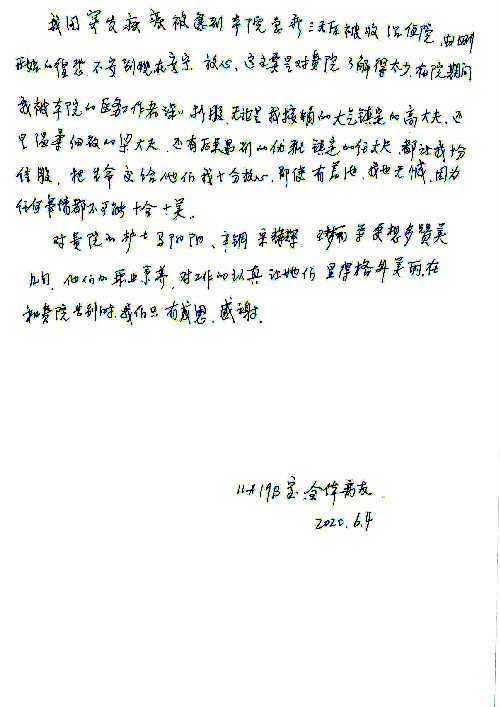 我因突发疾病被急送到本院急诊三天后被收治住院,由刚
开始的惶恐不安到现在安宁、放心,这主要是对贵院了解得太少,在院期间
我被本院的医务工作者深深折服,无论是我接触的大气镇定的高大夫,还
是温柔细致的梁大夫,还有后来遇到的镇定的任大夫,都让我十分
佩服,把生命交给他们我十分放心,即使有差池,我也无憾,因为
任何事情都不可能十全十美。
对贵院的护士马阳阳、辛钢、梁等更想多赞美
几句,他们的职业素养,对工作的认真让她们显得格外美丽,在
和贵院告别时,我们只有感恩,感谢。
19B室全体病友
2020.6.4